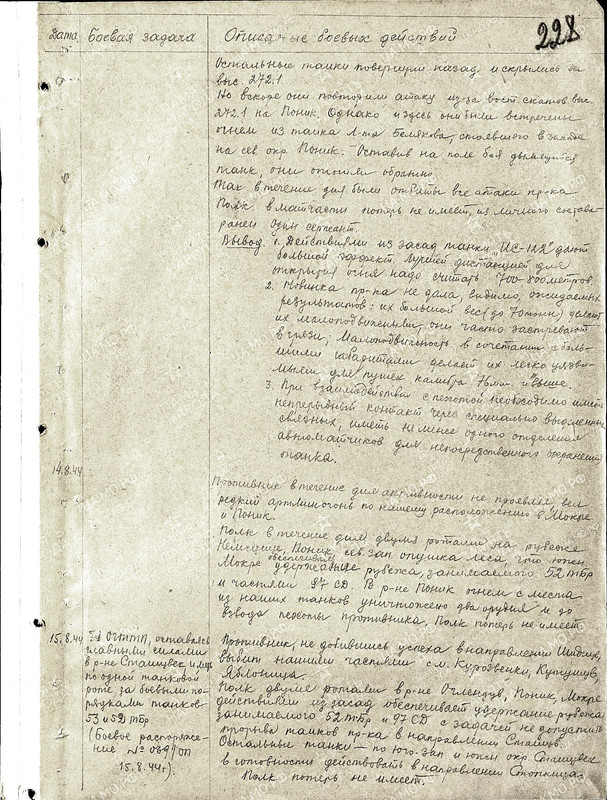 228
Дата Боевая задача Описание боевых действий
Остальные танки повернули назад и скрылись за
выс. 272.1
Но вскоре они повторили атаку из-за вост. скатов выс.
272.1 на Поник. Однако и здесь они были встречены
огнем из танка Л-та Белякова, стоявшего в засаде
на сев окр Поник. Оставив на поле боя дымящийся
танк, они отошли обратно.
Так в течение дня были отбиты все атаки пр-ка
Полк в матчасти потерь не имеет, из личного состава
ранен один сержант.
Вывод: 1. Действиями из засад танки „ИС-122" дают
большой эффект. Лучшей дистанцией для
открытия огня надо считать 700-800 метров.
2. Новинка пр-ка не дала, видимо, ожидаемых
результатов: их большой вес (до 70 тонн) делает
их малоподвижными, они часто застревают
в грязи; Малоподвижность в сочетании с боль-
шими габаритами делает их легко уязви-
мыми для пушек калибра 76 мм. и выше.
3. При взаимодействии с пехотой необходимо иметь
непрерывный контакт через специально выделенных
связных, иметь не менее одного отделения
автоматчиков для непосредственного охранения
танка.
14.8.44
Противник в течение дня активности не проявлял, вел
редкий артминогонь по нашему расположению в Мокре
и Поник.
Полк в течение дня двумя ротами на рубеже
Поник, сев. зап опушка леса, что южн.
Мокре обеспечивал удержание рубежа, занимаемого 52 тбр
и частями 97 СД. В р-не Поник огнем с места
из наших танков уничтожено два орудия и до
взвода пехоты противника. Полк потерь не имеет.
15.8.44 71 ОГТТП, оставаясь
главными силами
в р-не Сташувек иметь
по одной танковой
роте за боевыми по-
рядками танков
53 и 52 тбр
(Боевое распоряже-
ние № 089/ОП
15.8.44г.)
Противник, не добившись успеха в направлении Шидлув,
выбит нашими частями с м. Курозвенки,
Яблоница.
Полк двумя ротами в р-не Оглендув, Поник, Мокре
действиями из засад обеспечивает удержание рубежа
занимаемого 52 тбр и 97 СД с задачей не допустить
прорыва танков пр-ка в направлении Сташув.
Остальные танки – по юго-зап и южн окр. Сташувек
в готовности действовать в направлении Стопница.
Полк потерь не имеет.